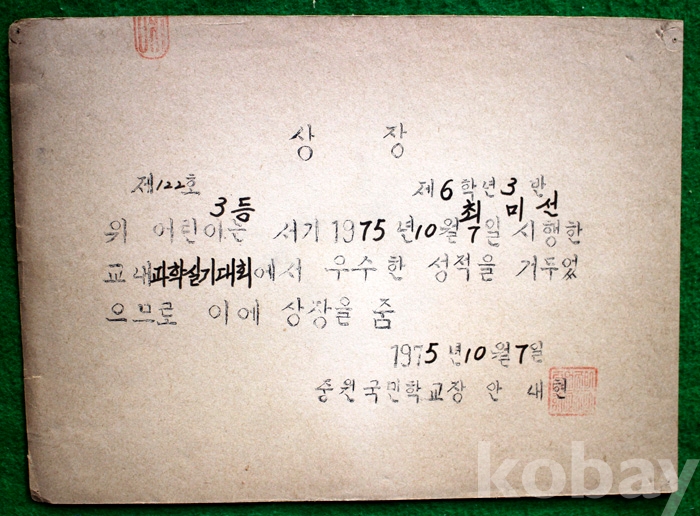 상 장
제122호
제6학년3반
3등
최미선
위 어린이는 서기 1975년10월7일 시행한
교내과학실기대회에서 우수한 성적을 거두었
으므로 이에 상장을 줌
1975년10월7일
중원국민학교장 안 내 현
kobay